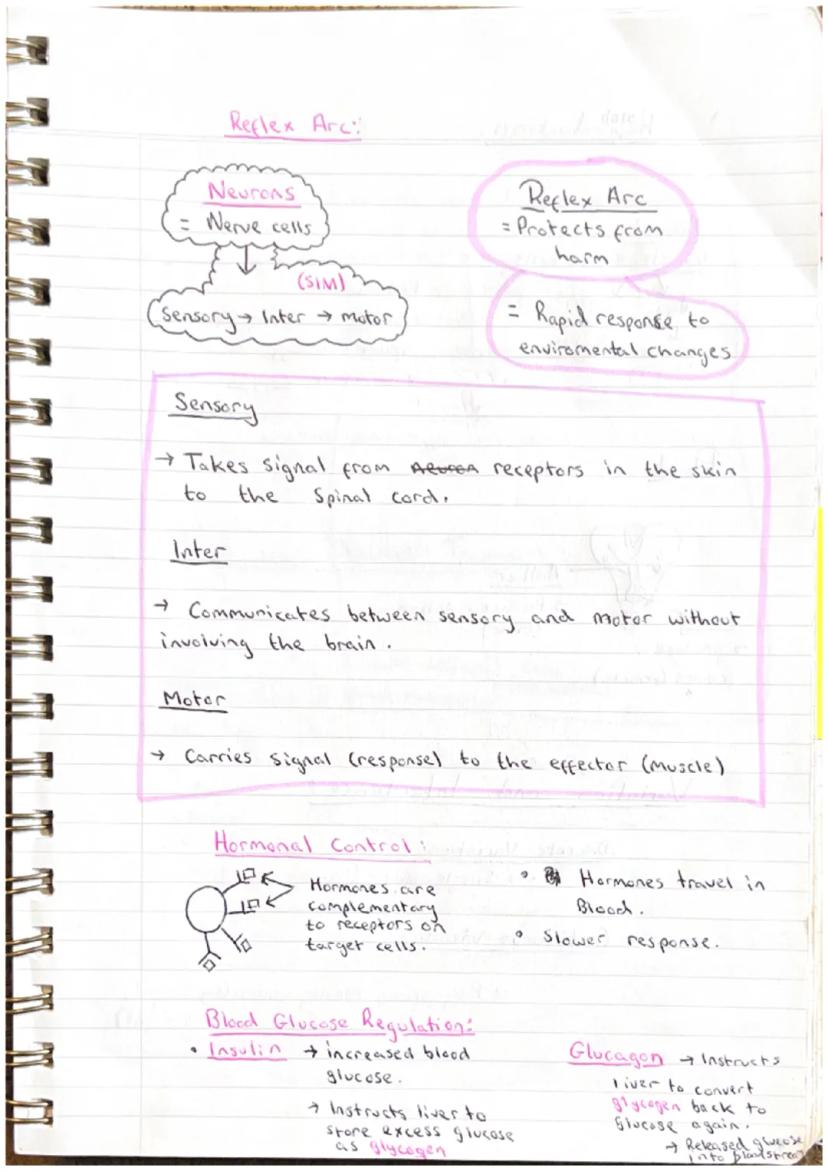 Reflex Arc:
Neurons
= Nerve cells
(SIM)
Sensory → Inter → motor
Reflex Arc
= Protects from
harm
= Rapid response to
enviromental changes
Sensory
→ Takes signal from receptors in the skin
to the Spinal cord.
Inter
→ Communicates between sensory and motor without
involving the brain.
Motor
→ Carries signal (response) to the effector (muscle)
Hormonal Control:
Hormones are
complementary
to receptors on
target cells.
• Hormones travel in
Blood.
• Slower response.
Blood Glucose Regulation:
• Insulin → increased blood
glucose.
→ Instructs liver to
store excess glucose
as glycogen
Glucagon → Instructs
liver to convert
glycogen back to
Glucose again.
→ Released glucose
into bloodstream